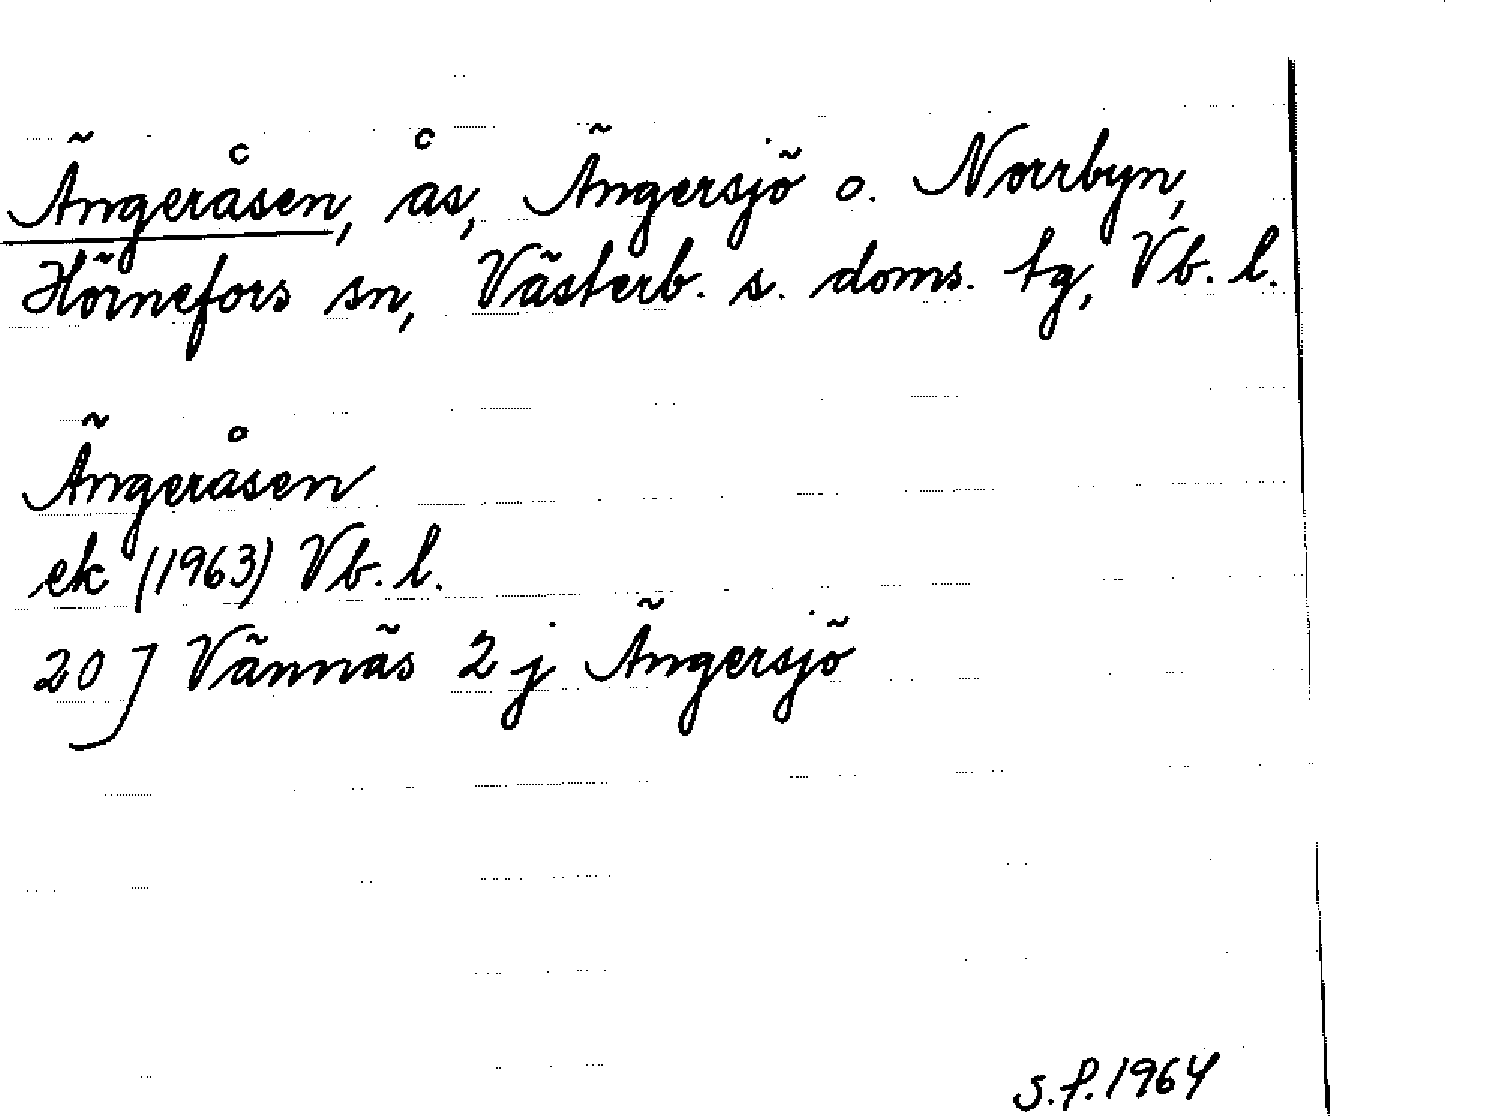 Ängeråsen, ås, Ängersjö o. Norrbyn,
Hörnefors sn, Västerb. s. doms. tg, Vb. l.
Ängeråsen
ek (1963) Vb. l.
20 J Vännäs 2 j Ängersjö
S.f. 1964